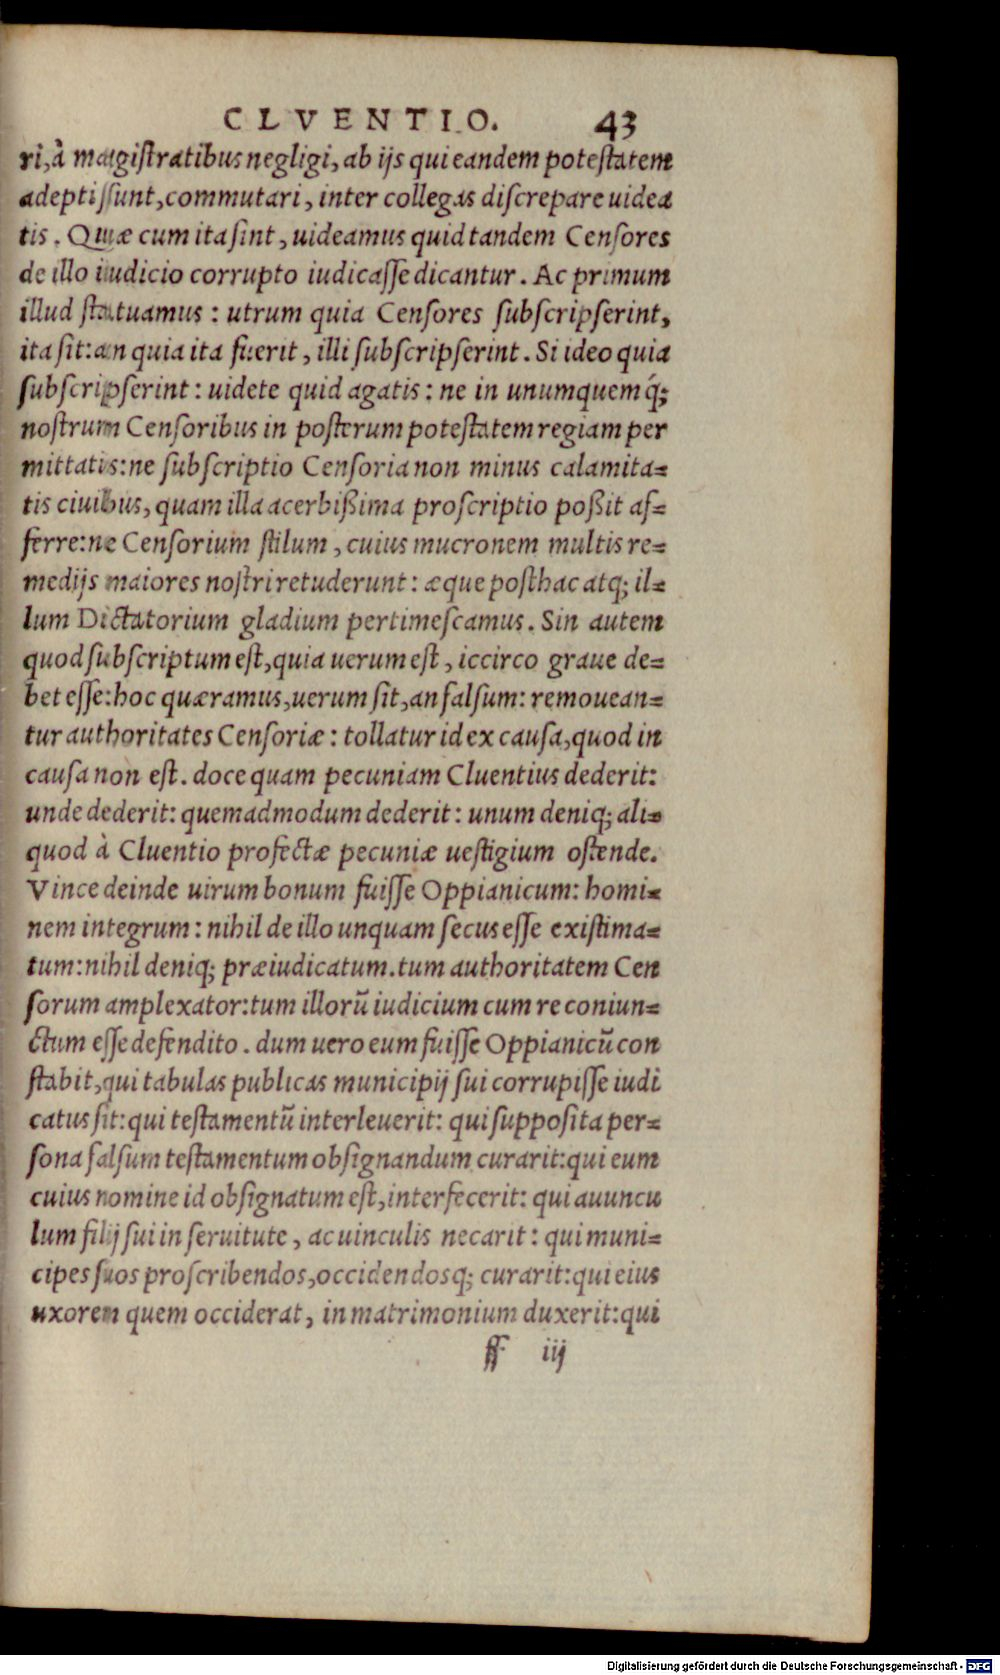 CLVENTIO. 43
ri, à magistratibus negligi, ab ijs qui eandem potestatem
adepti sunt, commutari, inter collegas discrepare uidea
tis. Quæ cum ita sint, uideamus quid tandem Censores
de illo iudicio corrupto iudicasse dicantur. Ac primum
illud statuamus: utrum quia Censores subscripserint,
ita sit: an quia ita fuerit, illi subscripserint. Si ideo quia
subscripserint: uidete quid agatis: ne in unumquemq́;
nostrum Censoribus in posterum potestatem regiam per
mittatis: ne subscriptio Censoria non minus calamita-
tis ciuibus, quam illa acerbißima proscriptio poßit af-
ferre: ne Censorium stilum, cuius mucronem multis re-
medijs maiores nostri retuderunt: æque posthac atq; il-
lum Dictatorium gladium pertimescamus. Sin autem
quod subscriptum est, quia uerum est, iccirco graue de-
bet esse: hoc quæramus, uerum sit, an falsum: remouean-
tur authoritates Censoriæ: tollatur id ex causa, quod in
causa non est. doce quam pecuniam Cluentius dederit:
unde dederit: quemadmodum dederit: unum deniq; ali-
quod à Cluentio profectæ pecuniæ uestigium ostende.
Vince deinde uirum bonum fuisse Oppianicum: homi-
nem integrum: nihil de illo unquam secus esse existima-
tum: nihil deniq; præiudicatum. tum authoritatem Cen
sorum amplexator: tum illorũ iudicium cum re coniun-
ctum esse defendito. dum uero eum fuisse Oppianicũ con
stabit, qui tabulas publicas municipij sui corrupisse iudi
catus sit: qui testamentũ interleuerit: qui supposita per-
sona falsum testamentum obsignandum curarit: qui eum
cuius nomine id obsignatum est, interfecerit: qui auuncu
lum filij sui in seruitute, ac uinculis necarit: qui muni-
cipes suos proscribendos, occidendosq; curarit: qui eius
uxorem quem occiderat, in matrimonium duxerit: qui
ff iij
Digitalisierung gefördert durch die Deutsche Forschungsgemeinschaft - DFG